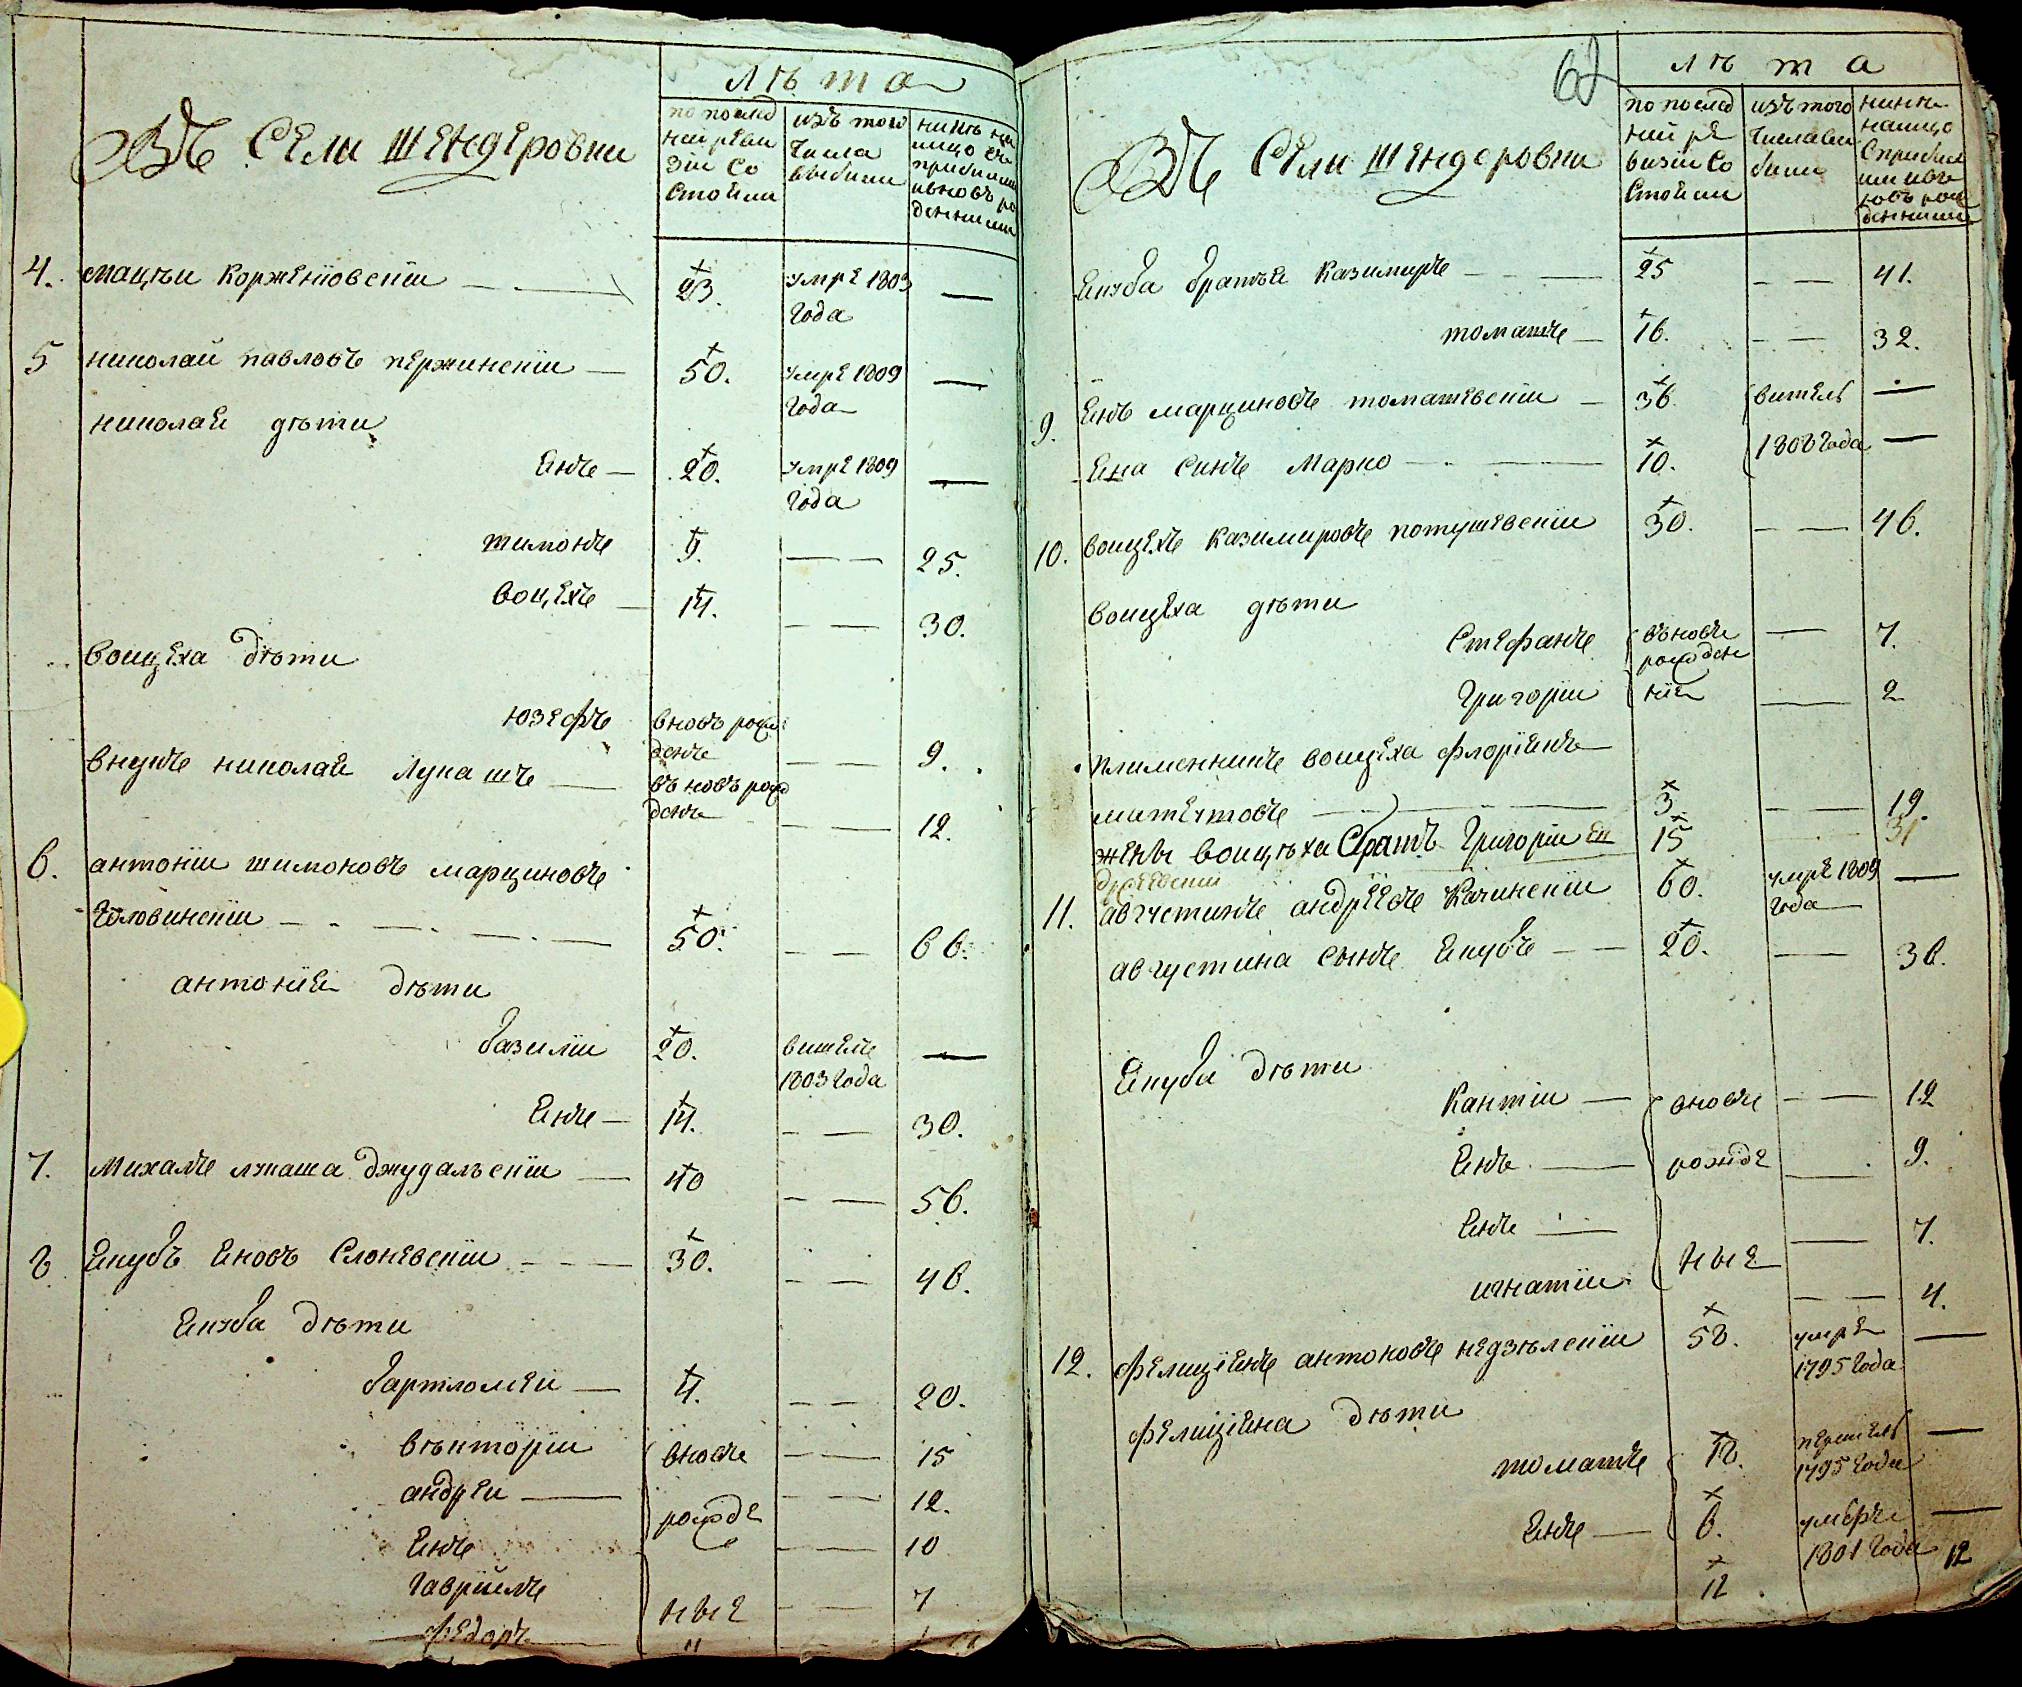 Лѣта
Въ Сели Шендеровки
по послед
ней реви
зии со
стояли
изъ того
числа
выбили
нинѣ на
лицо съ
прибили
ивновъ ро
денними
4. Мацѣи Корженiовскiи 23. умре 1803 —
года
5 николай павловъ пержинскiи — 50. умре 1809 —
года
николая дѣти
Янъ — 20. умре 1809 —
года
шимонъ 9. — — 25.
воцехъ — 14. — — 30.
воицеха дѣти
юзефъ вновъ рож
денъ — — 9.
внукъ николая Лукашъ — въ новъ рож
денъ — — 12.
6. антонiи шимоновъ марциновъ
Головинскiи 50. — — 66.
антонiя дѣти
базилiи 20. вишелъ —
1803 года
Янъ — 14. — — 30.
7. Михалъ лукаша Джудальскiи — 40 — — 56.
8 Якубъ Яновъ Слоневскiи 30. — — 46.
Якуба Дѣти
бартломей — 4. — — 20.
вѣкторiи вновъ — — 15
андреи — рожде — — 12.
Янъ — — 10
гаврiилъ ные — — 7
федоръ
62
Лѣта
Въ Сели Шендеровки
по послед
ней ре
визiи со
стояли
изъ того
числа ви
били
нинѣ
налицо
с прибил
ими ивъ
новъ рож
денними
Якуба братья Казимиръ — — 25 — — 41.
томашъ — 16. — — 32.
9. Янъ марциновъ томашевскiи — 36. вишелъ —
Яна синъ Марко — 10. 1808 года —
10. воицехъ Казимировъ потушевскiи 30. — — 46.
воицеха дѣти
Стефанъ въновъ
рожден — 7.
Григорiи нiя — 2
племенникъ воицеха флорiянъ
3. — — 19.
жены воицѣха братъ Григорiи 15 31
11. августинъ андреевъ Качинскiи 60. умре 1809 —
года
августина сынъ Якубъ — — 20. — 36.
Якуба дѣти
Кантiи — вновъ — — 12
Янъ — рожде — 9.
Янъ — — 7.
игнатiи ные — — 4.
12. Фелицiянъ антоновъ недзѣлскiи 58. умре —
1795 года
фелицiяна дѣти
томашъ 18. —
1795 года
Янъ — 6. умеръ —
1801 года
12 12